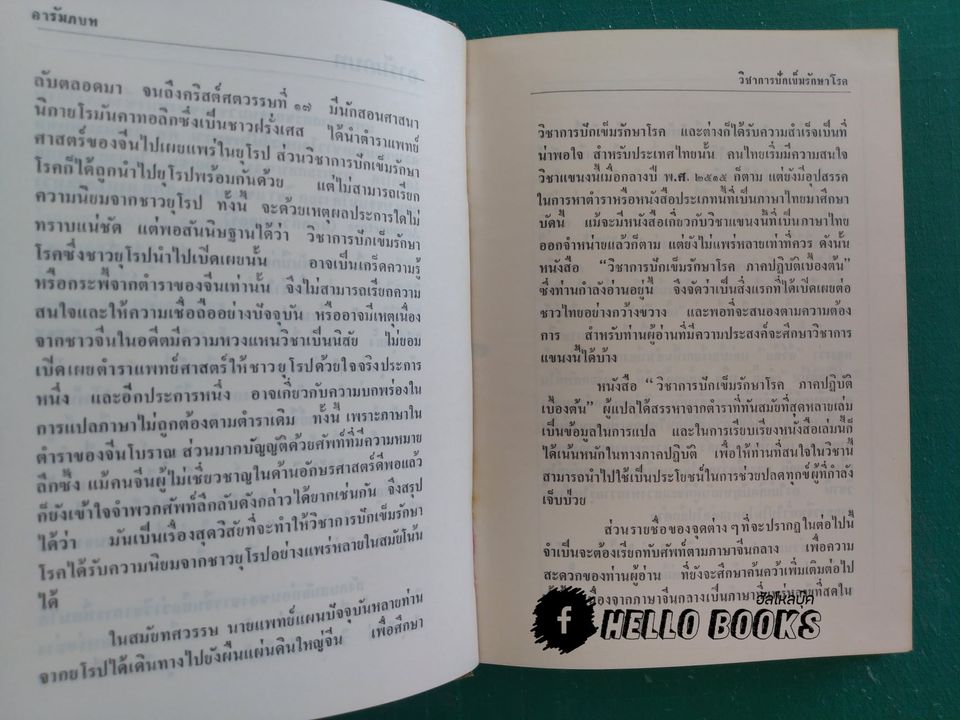 อารัมภบท
ลับตลอดมา จนถึงคริสต์ศตวรรษที่ ๑๗ มีนักสอนศาสนา
นิกายโรมันคาทอลิกซึ่งเป็นชาวฝรั่งเศส ได้นำตำราแพทย์
ศาสตร์ของจีนไปเผยแพร่ในยุโรป ส่วนวิชาการปักเข็มรักษา
โรคก็ได้ถูกนำไปยุโรปพร้อมกันด้วย แต่ไม่สามารถเรียก
ความนิยมจากชาวยุโรป ทั้งนี้ จะด้วยเหตุผลประการใดไม่
ทราบแน่ชัด แต่พอสันนิษฐานได้ว่า วิชาการปักเข็มรักษา
โรคซึ่งชาวยุโรปนำไปเปิดเผยนั้น อาจเป็นเกร็ดความรู้
หรือกระพี้จากตำราของจีนเท่านั้น จึงไม่สามารถเรียกความ
สนใจและให้ความเชื่อถืออย่างปัจจุบัน หรืออาจมีเหตุเนื่อง
จากชาวจีนในอดีตมีความหวงแหนวิชาเป็นนิสัย ไม่ยอม
เปิดเผยตำราแพทย์ศาสตร์ให้ชาวยุโรปด้วยใจจริงประการ
หนึ่ง และอีกประการหนึ่ง อาจเกี่ยวกับความบกพร่องใน
การแปลภาษาไม่ถูกต้องตามตำราเดิม ทั้งนี้ เพราะภาษาใน
ตำราของจีนโบราณ ส่วนมากบัญญัติด้วยศัพท์ที่มีความหมาย
ลึกซึ้ง แม้คนจีนผู้ไม่เชี่ยวชาญในด้านอักษรศาสตร์ดีพอแล้ว
ก็ยังเข้าใจจำพวกศัพท์ลึกลับดังกล่าวได้ยากเช่นกัน จึงสรุป
ได้ว่า มันเป็นเรื่องสุดวิสัยที่จะทำให้วิชาการปักเข็มรักษา
โรคได้รับความนิยมจากชาวยุโรปอย่างแพร่หลายในสมัยโน้น
ได้
ในสมัยทศวรรษ นายแพทย์แผนปัจจุบันหลายท่าน
จากยุโรปได้เดินทางไปยังผืนแผ่นดินใหญ่จีน เพื่อศึกษา
วิชาการปักเข็มรักษาโรค
วิชาการปักเข็มรักษาโรค และต่างก็ได้รับความสำเร็จเป็นที่
น่าพอใจ สำหรับประเทศไทยนั้น คนไทยเริ่มมีความสนใจ
วิชาแขนงนี้เมื่อกลางปี พ.ศ. ๒๕๑๕ ก็ตาม แต่ยังมีอุปสรรค
ในการหาตำราหรือหนังสือประเภทนี้ที่เป็นภาษาไทยมาศึกษา
บัดนี้ แม้จะมีหนังสือเกี่ยวกับวิชาแขนงนี้ที่เป็นภาษาไทย
ออกจำหน่ายแล้วก็ตาม แต่ยังไม่แพร่หลายเท่าที่ควร ดังนั้น
หนังสือ “วิชาการปักเข็มรักษาโรค ภาคปฏิบัติเบื้องต้น”
ซึ่งท่านกำลังอ่านอยู่นี้ จึงจัดว่าเป็นสิ่งแรกที่ได้เปิดเผยต่อ
ชาวไทยอย่างกว้างขวาง และพอที่จะสนองตามความต้อง
การ สำหรับท่านผู้อ่านที่มีความประสงค์จะศึกษาวิชาการ
แขนงนี้ได้บ้าง
หนังสือ “วิชาการปักเข็มรักษาโรค ภาคปฏิบัติ
เบื้องต้น” ผู้แปลได้สรรหาจากตำราที่ทันสมัยที่สุดหลายเล่ม
เป็นข้อมูลในการแปล และในการเรียบเรียงหนังสือเล่มนี้ก็
ได้เน้นหนักในทางภาคปฏิบัติ เพื่อให้ท่านที่สนใจในวิชานี้
สามารถนำไปใช้เป็นประโยชน์ในการช่วยปลดทุกข์ผู้ที่กำลัง
เจ็บป่วย
ส่วนรายชื่อของจุดต่าง ๆ ที่จะปรากฏในต่อไปนี้
จำเป็นจะต้องเรียกทับศัพท์ตามภาษาจีนกลาง เพื่อความ
สะดวกของท่านผู้อ่าน ที่ยังจะศึกษาค้นคว้าเพิ่มเติมต่อไป
เนื่องจากภาษาจีนกลางเป็นภาษาที่แพร่หลายที่สุดใน
ฮัลโหลบุ๊ค
f HELLO BOOKS